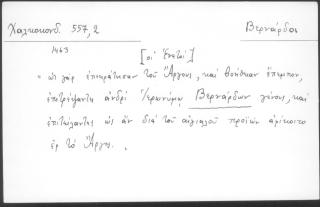 Χαλκοκονδ. 557,2 Βερνάρδοι
1463 [οἱ Ἐνετοὶ]
" ὡς γὰρ ἐπεκράτησαν τοῦ Ἄργους, καὶ βοήθειαν ἔπεμπον,
ἐπιτρέψαντες ἀνδρὶ Ἱερωνύμῳ Βερνάρδων γένους, καὶ
ἐπιστείλαντες ὡς ἂν διὰ τοῦ αἰγιαλοῦ προϊὼν ἀφίκοιτο
ἐς τὸ Ἄργος.